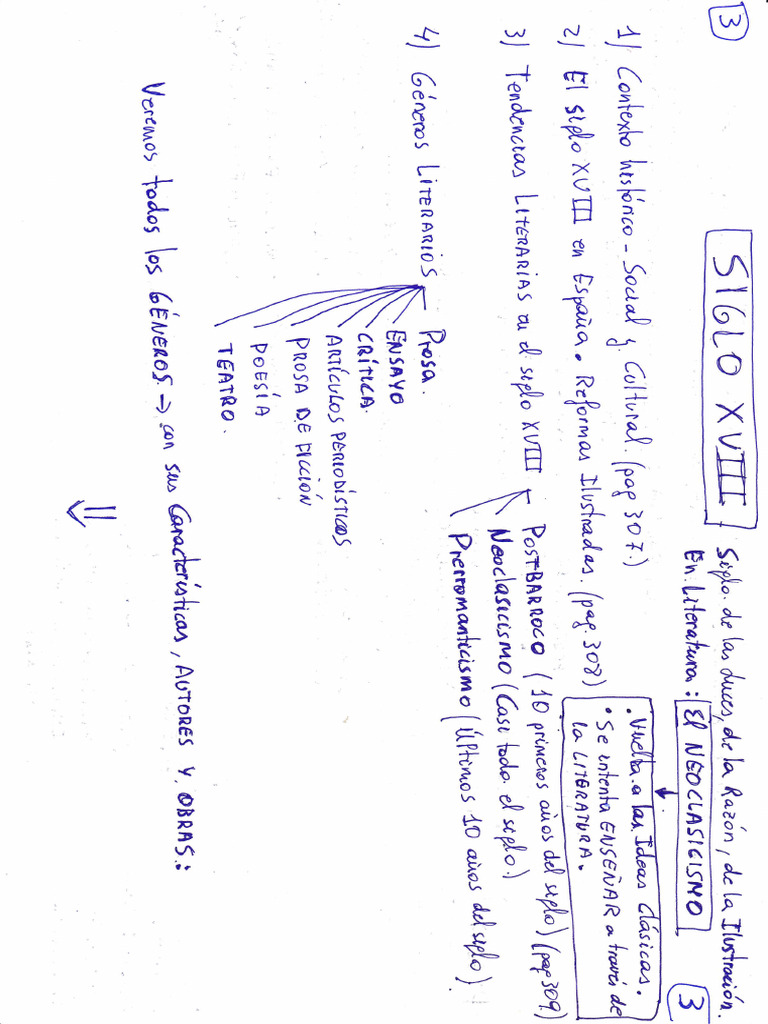 3
SIGLO XVIII
Siglo de las luces, de la Razón, de la Ilustración.
En Literatura: El NEOCLASICISMO
3
• Vuelta a las Ideas Clásicas.
• Se intenta ENSEÑAR a través de
la LITERATURA.
1) Contexto histórico - Social y Cultural. (pag 307.)
2) El siglo XVIII en España. Reformas Ilustradas. (pag. 308)
3) Tendencias LITERARIAS en el siglo XVIII
POSTBARROCO (10 primeros años del siglo) (pag 309.)
Neoclasicismo (Casi todo el siglo.)
Prerromanticismo (Últimos 10 años del siglo).
4) Géneros LITERARIOS
Prosa.
ENSAYO
CRÍTICA.
ARTÍCULOS PERIODÍSTICOS
PROSA DE FICCIÓN
POESÍA
TEATRO.
Veremos todos los GÉNEROS. → con sus Características, AUTORES Y OBRAS.:
⇓